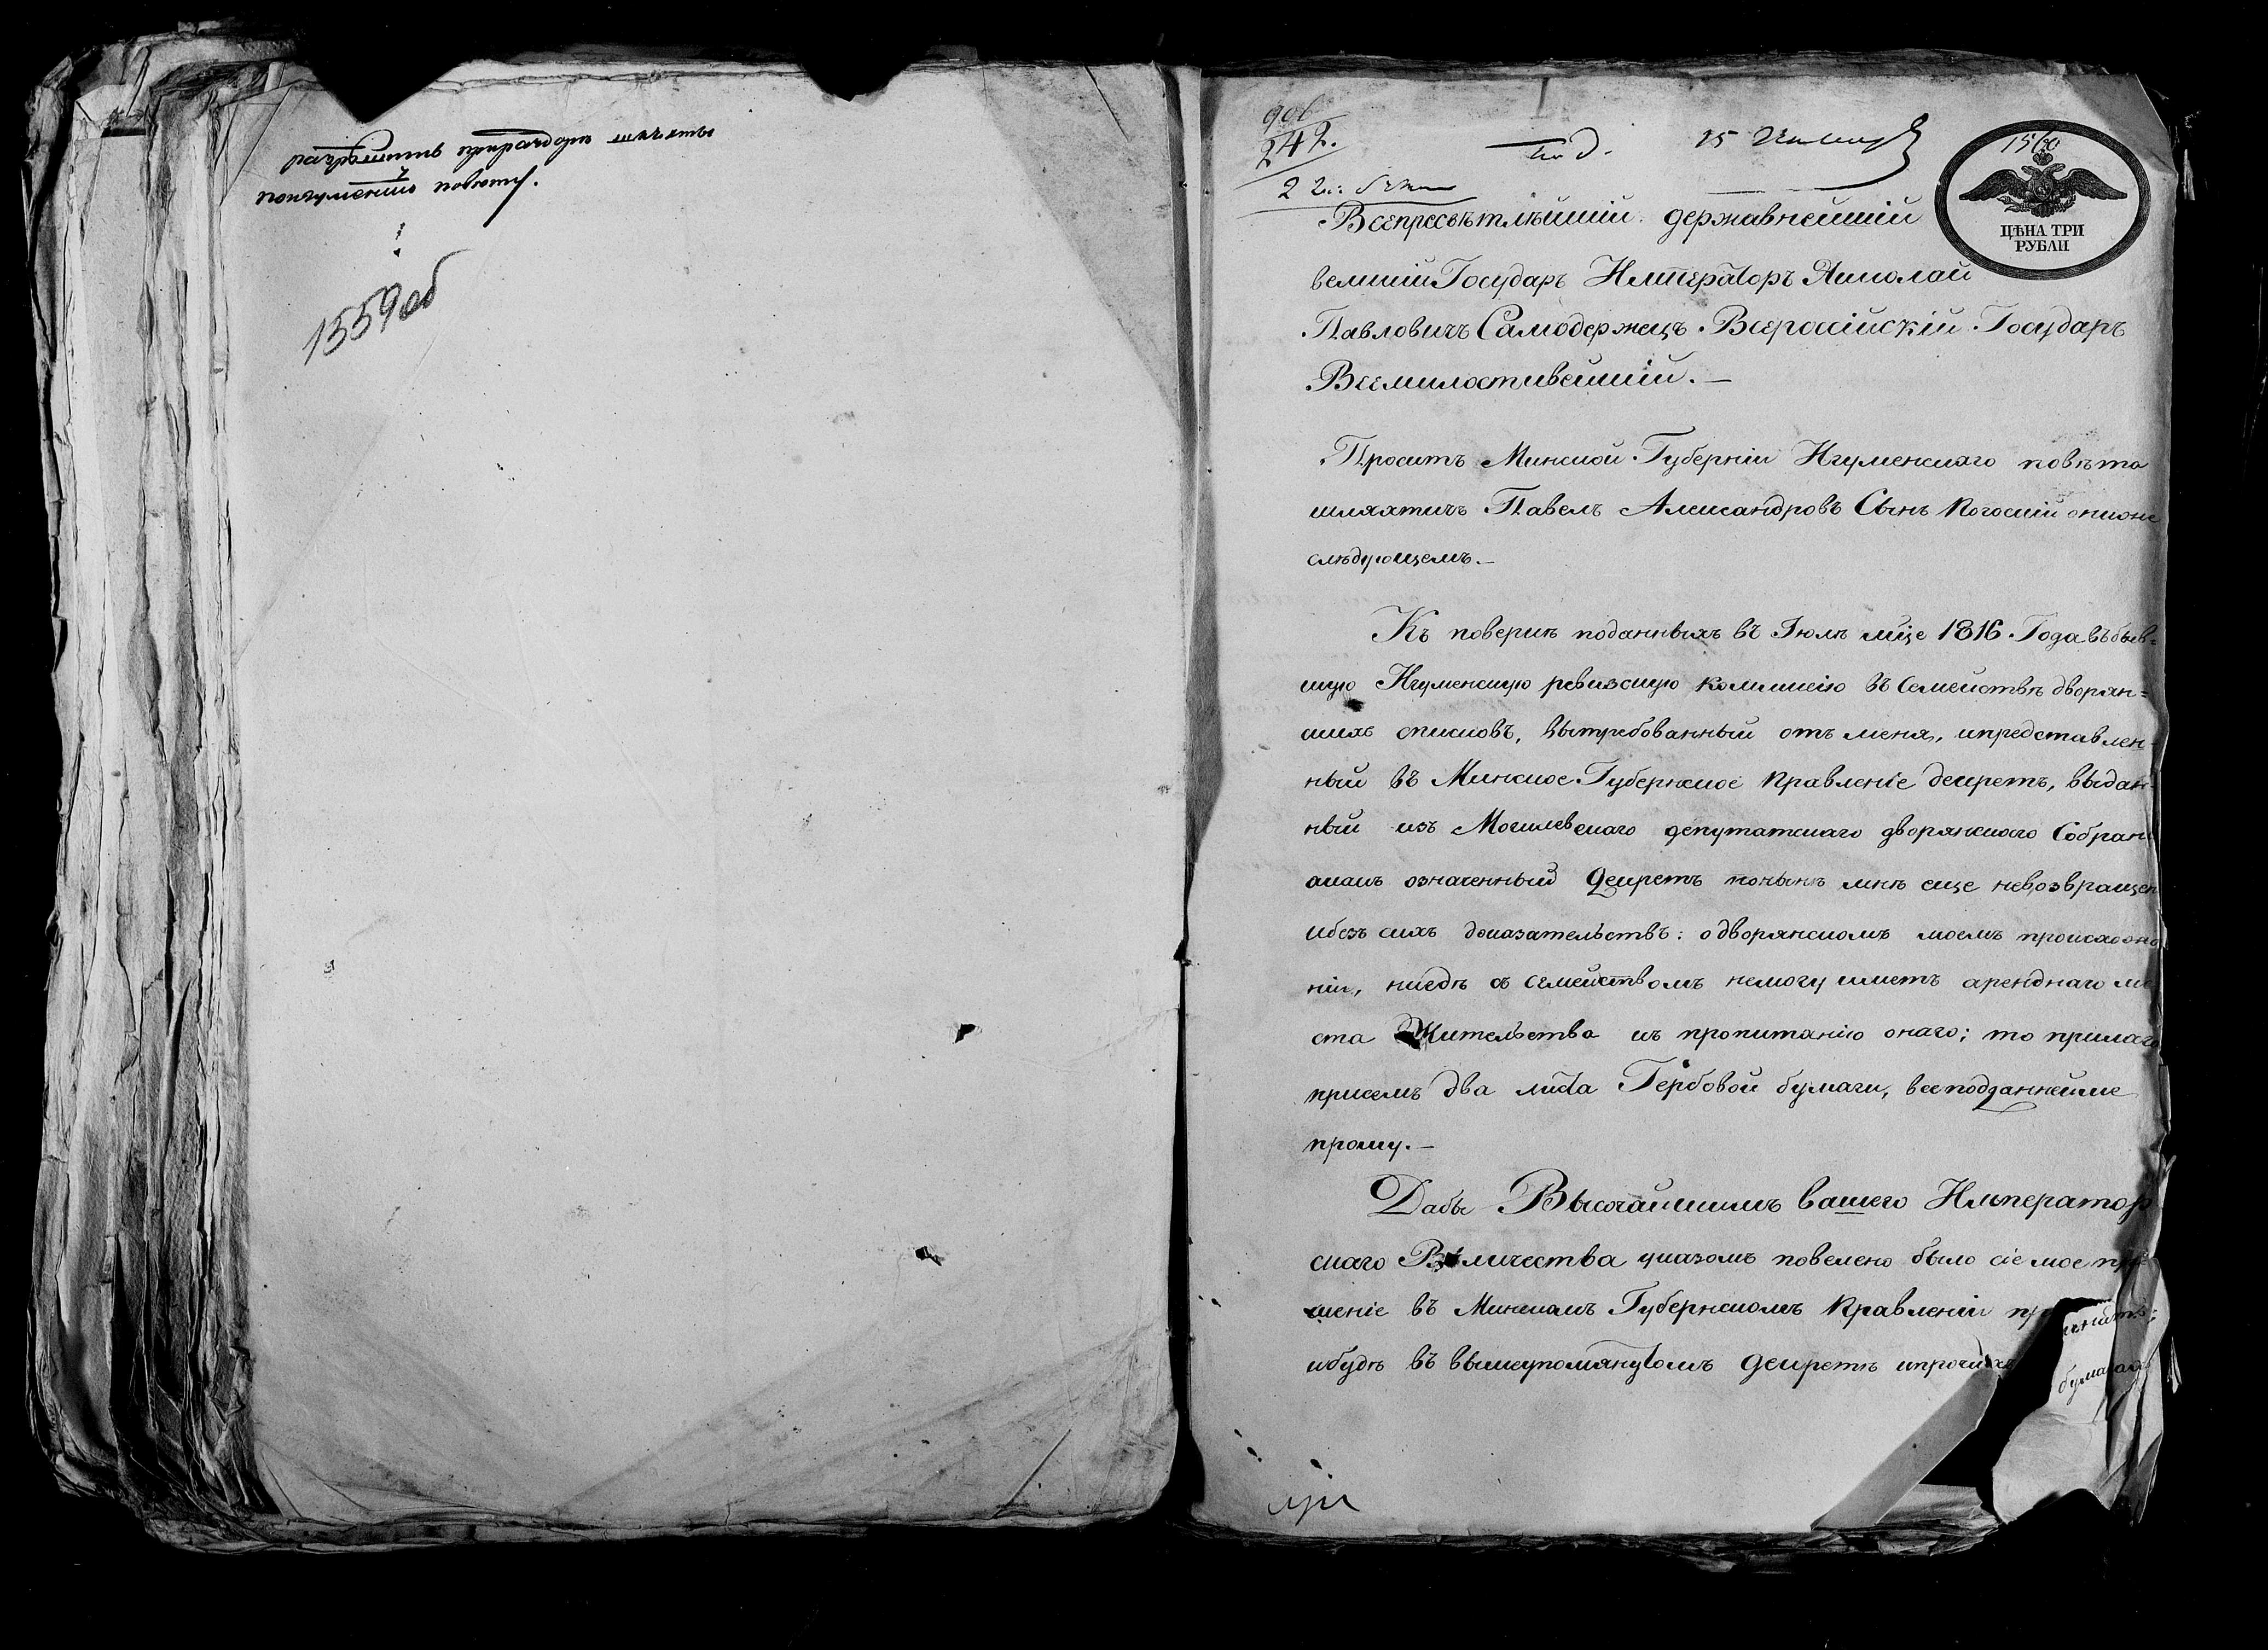 по Игуменскому повету.
1559 об
906
242.
15
1560
ЦѢНА ТРИ
РУБЛИ
Всепресвѣтлѣйшій державнейшій
великій Государь Императоръ Николай
Павловичъ Самодержецъ Всеросійскій Государь
Всемилостивейшій. —
Проситъ Минской Губерніи Игуменскаго повѣта
шляхтичь Павелъ Александровъ Сынъ
слѣдующемъ. —
Къ поверкѣ поданныхъ въ Іюлѣ мцѣ 1816. Года въ быв=
шую Игуменскую ревизскую комисію въ Семействѣ дворян=
скихъ списковъ, вытребованный отъ меня, ипредставлен-
ный въ Минское Губернское Правленіе декретъ, выдан-
ный изъ Могилевскаго депутатскаго дворянскаго Собран
акакъ означенный Декретъ понынѣ мнѣ еще невозвращен
ибезъ сихъ доказательствъ: одворянскомъ моемъ происхожде
ніи, нигдѣ съ семействомъ немогу иметь аренднаго мѣ
ста Жительства къ пропитанію онаго; то прилага
присемъ два листа Гербовой бумаги, всеподданнейше
прошу. —
Дабы Высочайшимъ вашего Император
скаго Величества указомъ повелено было сіе мое про
шеніе въ Минскомъ Губернскомъ Правленіи
ибудѣ въ вышеупомянутомъ декретѣ ипрочихъ бумагахъ